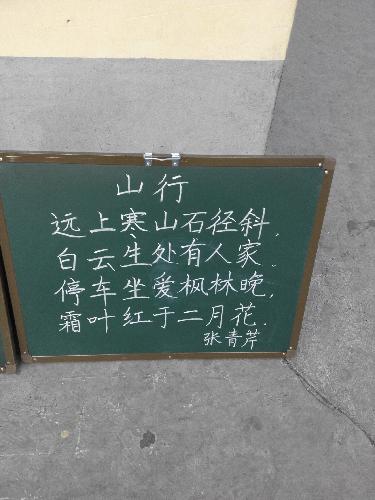 山行
远上寒山石径斜,
白云生处有人家.
停车坐爱枫林晚,
霜叶红于二月花.
张青芹